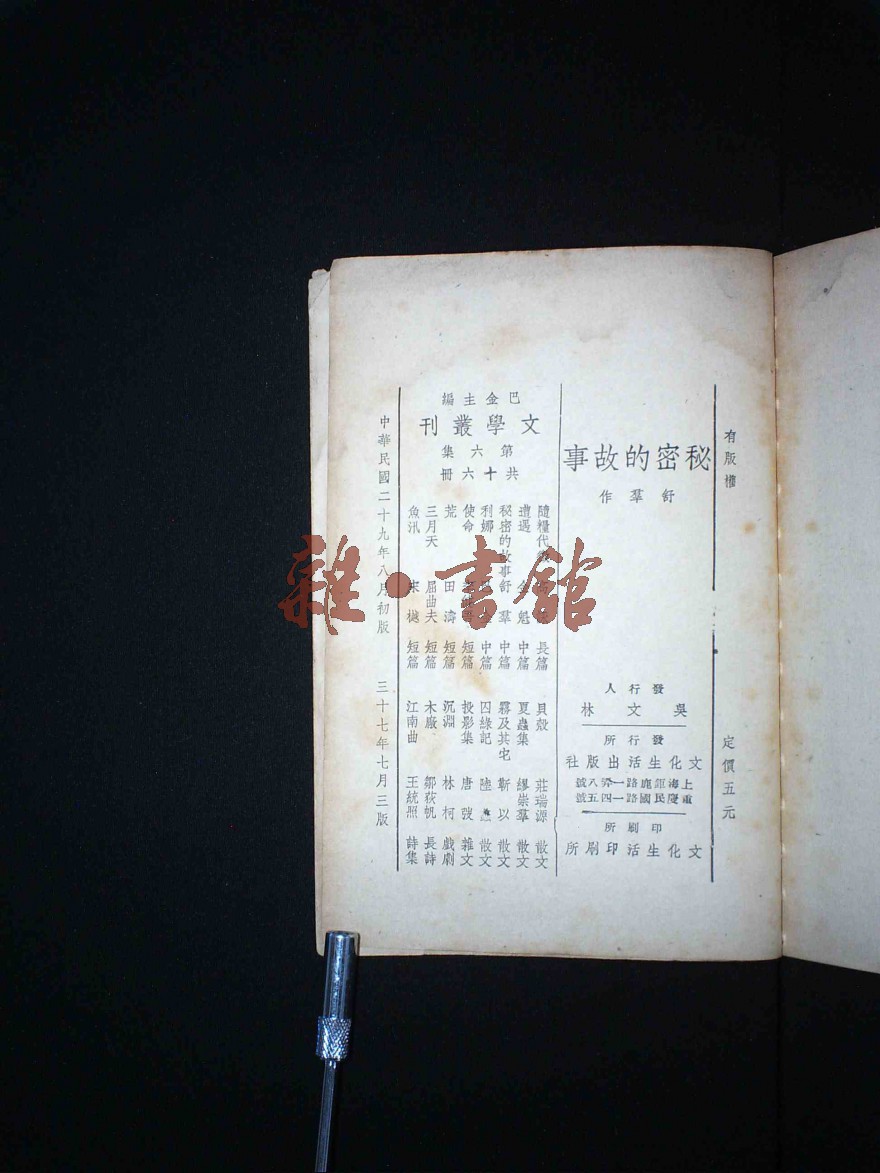 有版權
定價五元
秘密的故事
舒羣作
發行人
吳文林
發行所
文化生活出版社
上海鉅鹿路一弄八號
重慶民國路一四五號
印刷所
文化生活印刷所
巴金主編
文學叢刊
第六集
共十六冊
隨糧代 長篇
遭遇 金魁 中篇
秘密的故事 舒羣 中篇
利娜 中篇
使命 短篇
荒 田濤 短篇
三月天 屈曲夫 短篇
魚汛 宋樾 短篇
貝殼 莊瑞源 散文
夏蟲集 繆崇羣 散文
霧及其它 靳以 散文
囚綠記 陸 散文
投影集 唐弢 雜文
沉淵 林柯 戲劇
木廠 鄒荻帆 長詩
江南曲 王統照 詩集
中華民國二十九年八月初版
三十七年七月三版
雜·書館